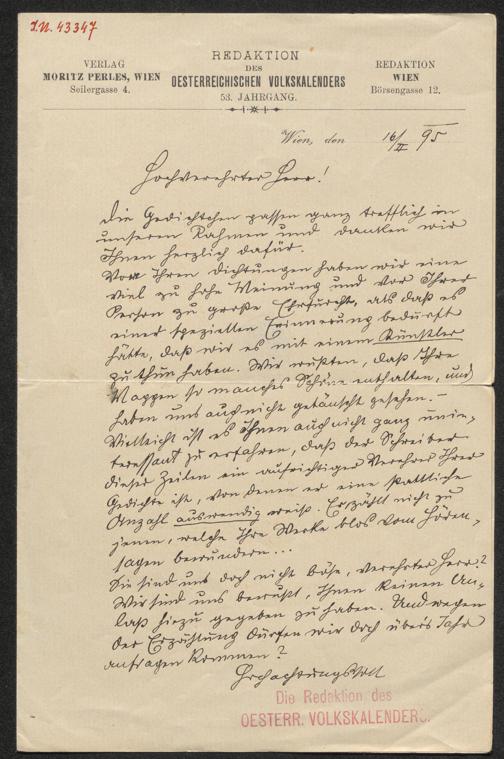 I.N. 43347
VERLAG
MORITZ PERLES, WIEN
Seilergasse 4.
REDAKTION
DES
OESTERREICHISCHEN VOLKSKALENDERS
53. JAHRGANG.
REDAKTION
WIEN
Börsengasse 12.
Wien, den 16/II 95
Hochverehrter Herr!
Die Gedichtchen passen ganz trefflich in
unseren Rahmen und danken wir
Ihnen herzlich dafür.
Von Ihren Dichtungen haben wir eine
viel zu hohe Meinung und vor Ihrer
Person zu große Ehrfurcht, als daß es
einer speziellen Erinnerung bedurft
hätte, daß wir es mit einem Künstler
zu thun haben. Wir wußten, daß Ihre
Mappen so manches Schöne enthalten, und
haben uns auch nicht getäuscht gesehen. –
Vielleicht ist es Ihnen auch nicht ganz unin-
teressant zu erfahren, daß der Schreiber
dieser Zeilen ein aufrichtiger Verehrer Ihrer
Gedichte ist, von denen er eine stattliche
Anzahl auswendig weiß. Er zählt nicht zu
jenen, welche Ihre Werke blos vom Hören-
sagen bewundern...
Sie sind uns doch nicht böse, verehrter Herr?
Wir sind uns bewußt, Ihnen keinen An-
laß hiezu gegeben zu haben. Und wegen
der Erzählung dürfen wir doch übers Jahr
anfragen kommen?
Hochachtungsvoll
Die Redaktion des
OESTERR. VOLKSKALENDERS.